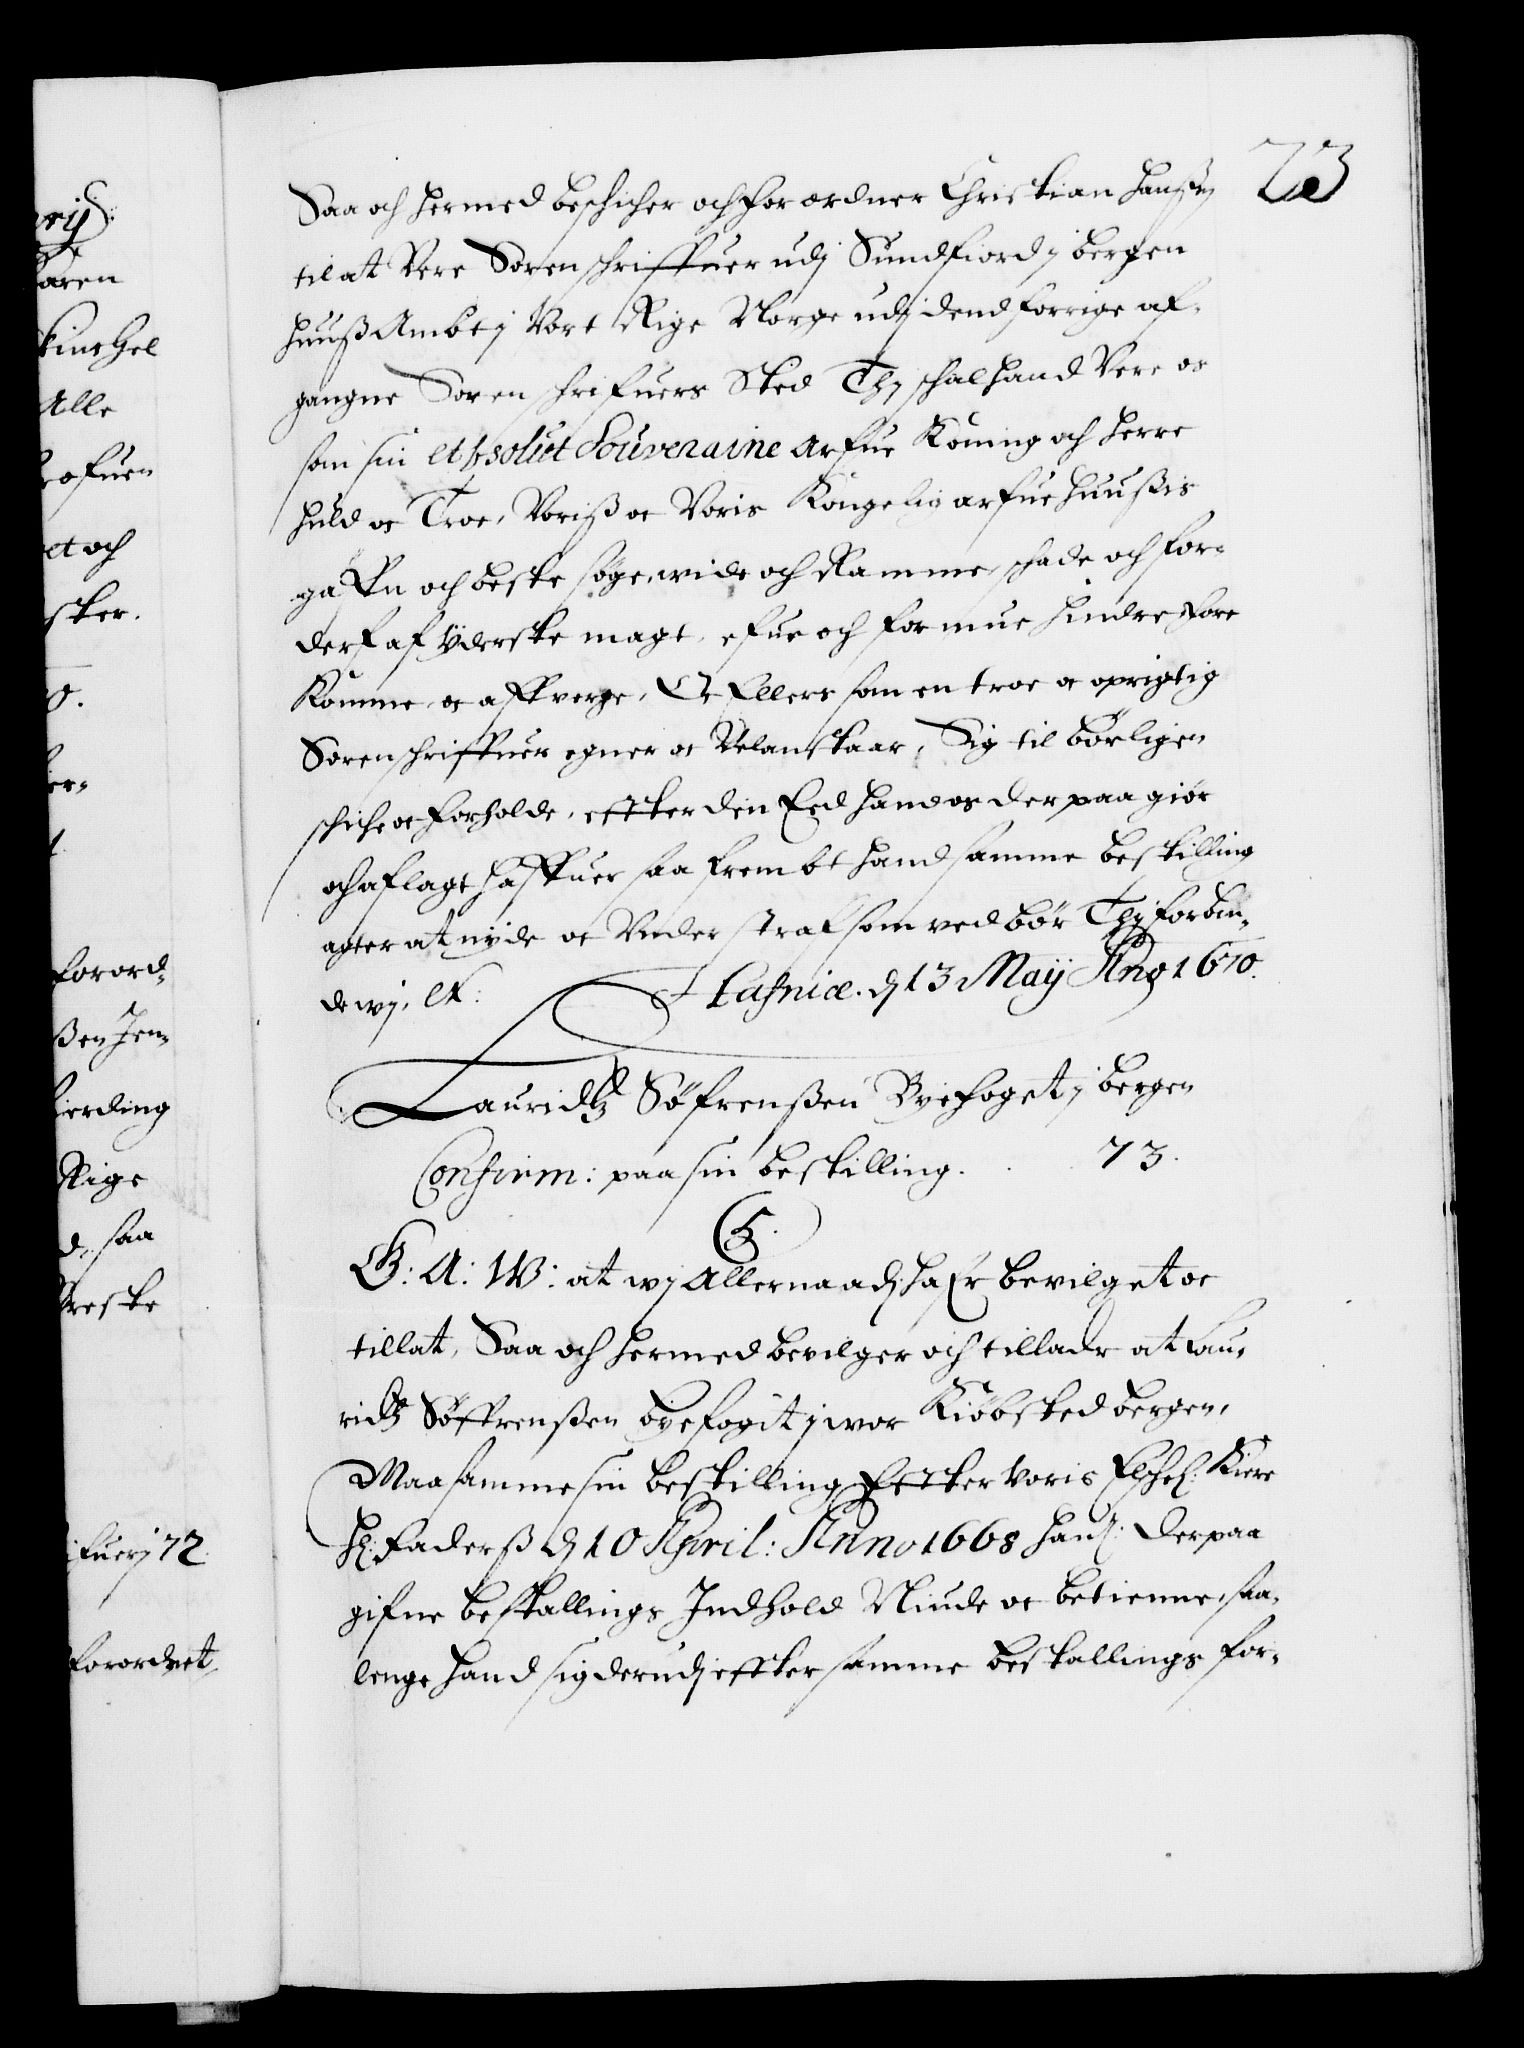 73
Saa och hermed beschicher och forordner Christian Hanßen
til at Vere Sorenschriffuer udj Sundfiord j bergen
huuß Ambt j Vort Rige Norge udj dend forrige af-
gangne Sorenschrifuers Sted Thj schal hand Vere os
som sin Absolut Souveraine Arfue Koning och Herre
huld oc Troe, Voriß oc Voris Kongelig arfue huußis
gaffn och beste søge, wide och Ramme, schade och for-
derf af yderste magt, efue och formue hindre, fore
Komme, oc affverge, Oc Ellers som en troe oc oprigtig
Sorenschriffuer egner oc Velanstaar, Sig til børligen
schiche oc forholde, effter den Eed hand os derpaa giør
och aflagt haffuer saa frembt hand samme bestilling
agter at nyde oc Vnder straf som ved bør Thj forbiu-
de wj, etc: Hafniæ. d 13 Maij Ano 1670.
Lauridtz Søfrenßen Byefoget j bergen
Confirm: paa sin bestilling. 73.
C5.
G: A: W: at wj Allernaadj: hafr bevilget oc
tillat, Saa och hermed bevilger och tillader at Lau-
ridtz Søffrenßen byefogit j wor Kiøbsted bergen,
Maa samme sin bestilling Effter Voris Elschel: Kiere
Hr: Faderß d 10 April: Anno 1668 hannem: derpaa
gifne bestallings Indhold Niude oc betienne, saa-
lenge hand sig derudj effter samme bestallings for-
aren
Alle
ofuen
et och
ster.
forord-
ßen Jen-
Rige
saa
ifuer j 72
forordnet